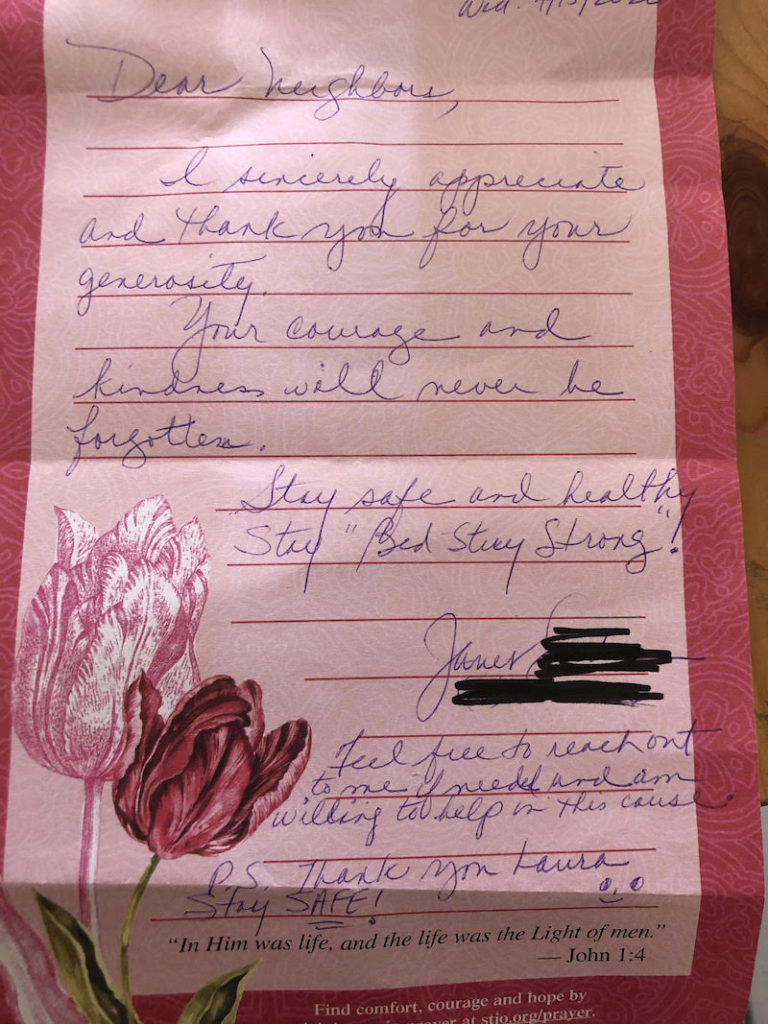 Wed.
Dear Neighbors,
I sincerely appreciate
and thank you for your
generosity.
Your courage and
kindness will never be
forgotten.
Stay safe and healthy
Stay "Bed Stuy Strong"!
Janet
Feel free to reach out
to me if need and am
willing to help in this cause.
P.S. Thank you Laura
Stay SAFE!
“In Him was life, and the life was the Light of men.”
— John 1:4
Find comfort, courage and hope by
at stjo.org/prayer.